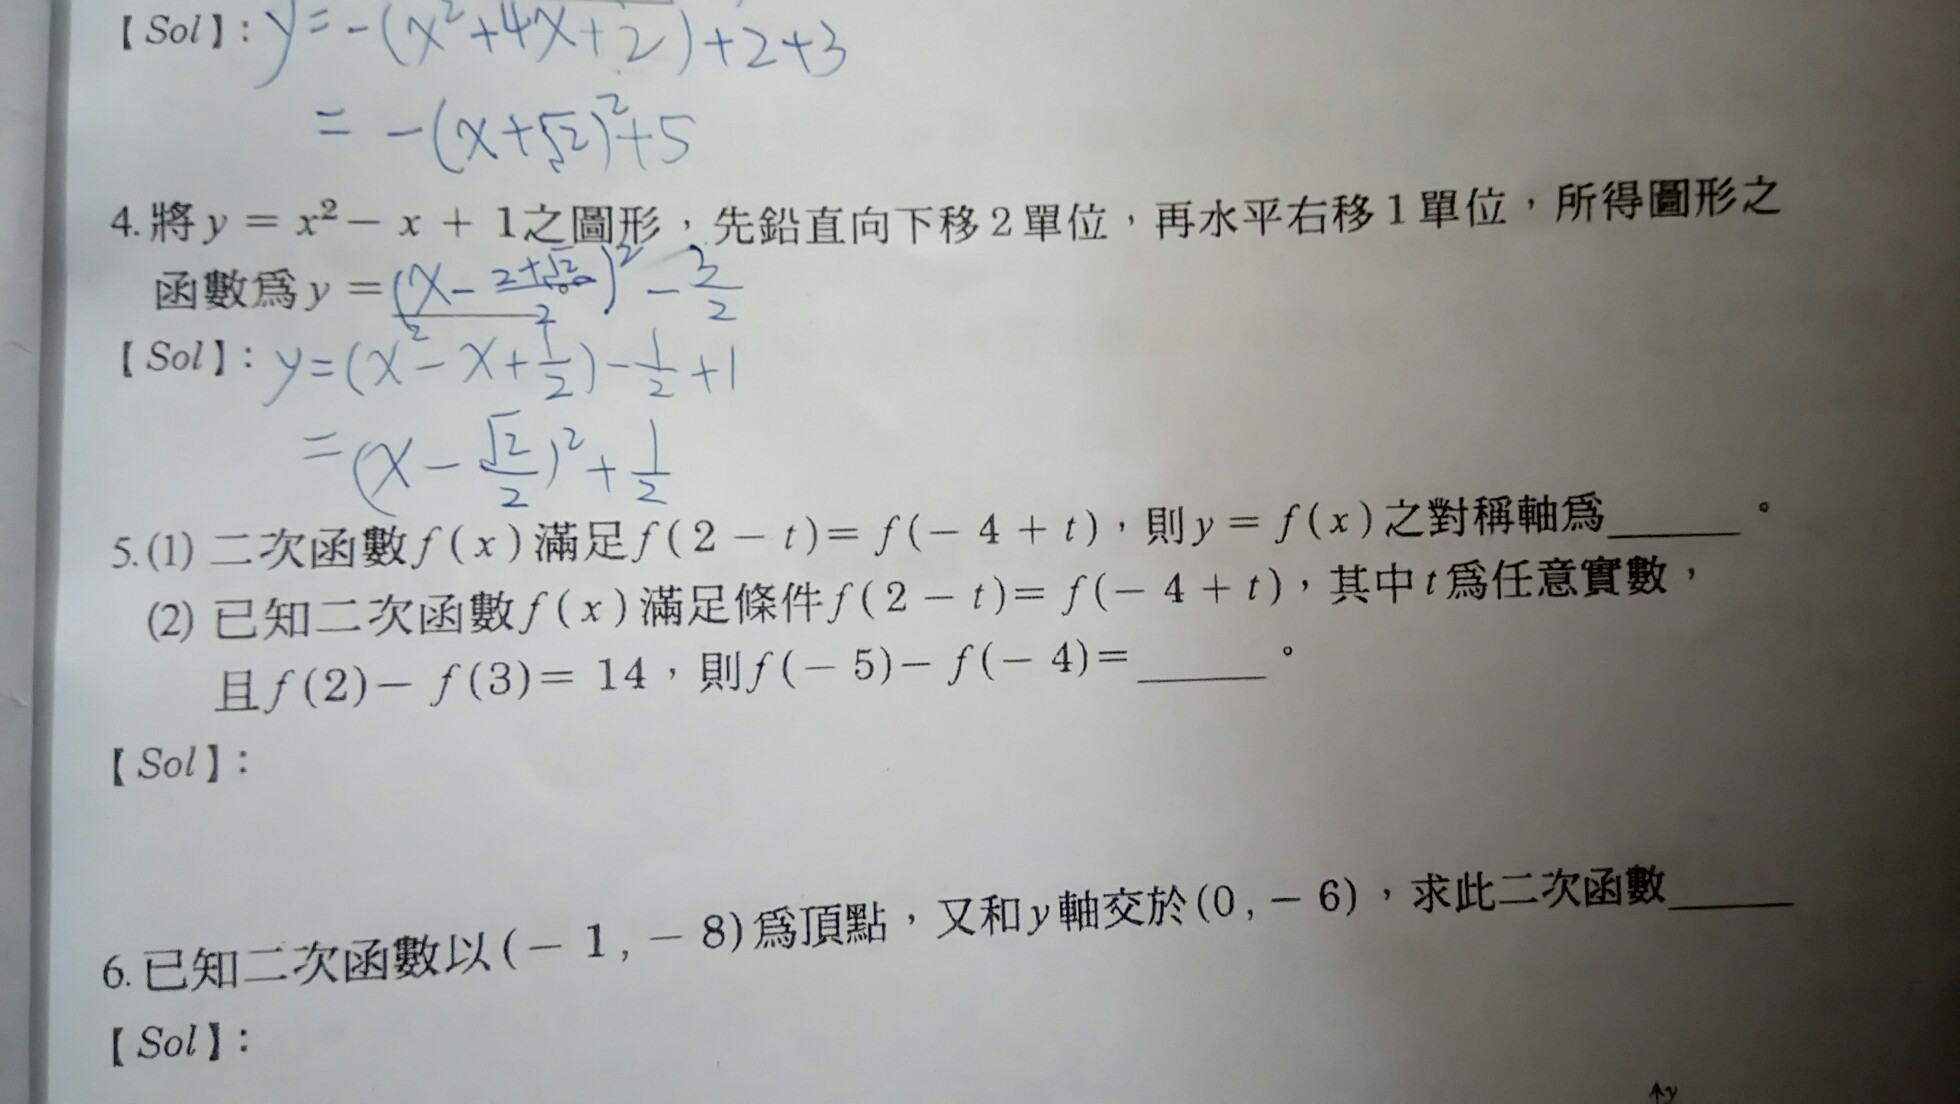 【Sol】: y=-(x²+4x+2)+2+3
= -(x+√2)²+5
4.將 y = x² − x + 1之圖形，先鉛直向下移2單位，再水平右移1單位，所得圖形之
函數爲 y = (x- 2+√2/2)² - 3/2
【Sol】: y=(x²-x+1/2)-1/2+1
=(x-√2/2)²+1/2
5.(1) 二次函數f(x)滿足f(2 − t)= f(− 4 + t)，則y = f(x)之對稱軸爲______。
(2) 已知二次函數f(x)滿足條件f(2 − t)= f(− 4 + t)，其中t爲任意實數，
且f(2)− f(3)= 14，則f(− 5)− f(− 4)=______。
【Sol】:
6.已知二次函數以(− 1, − 8)爲頂點，又和y軸交於(0, − 6)，求此二次函數______
【Sol】:
y